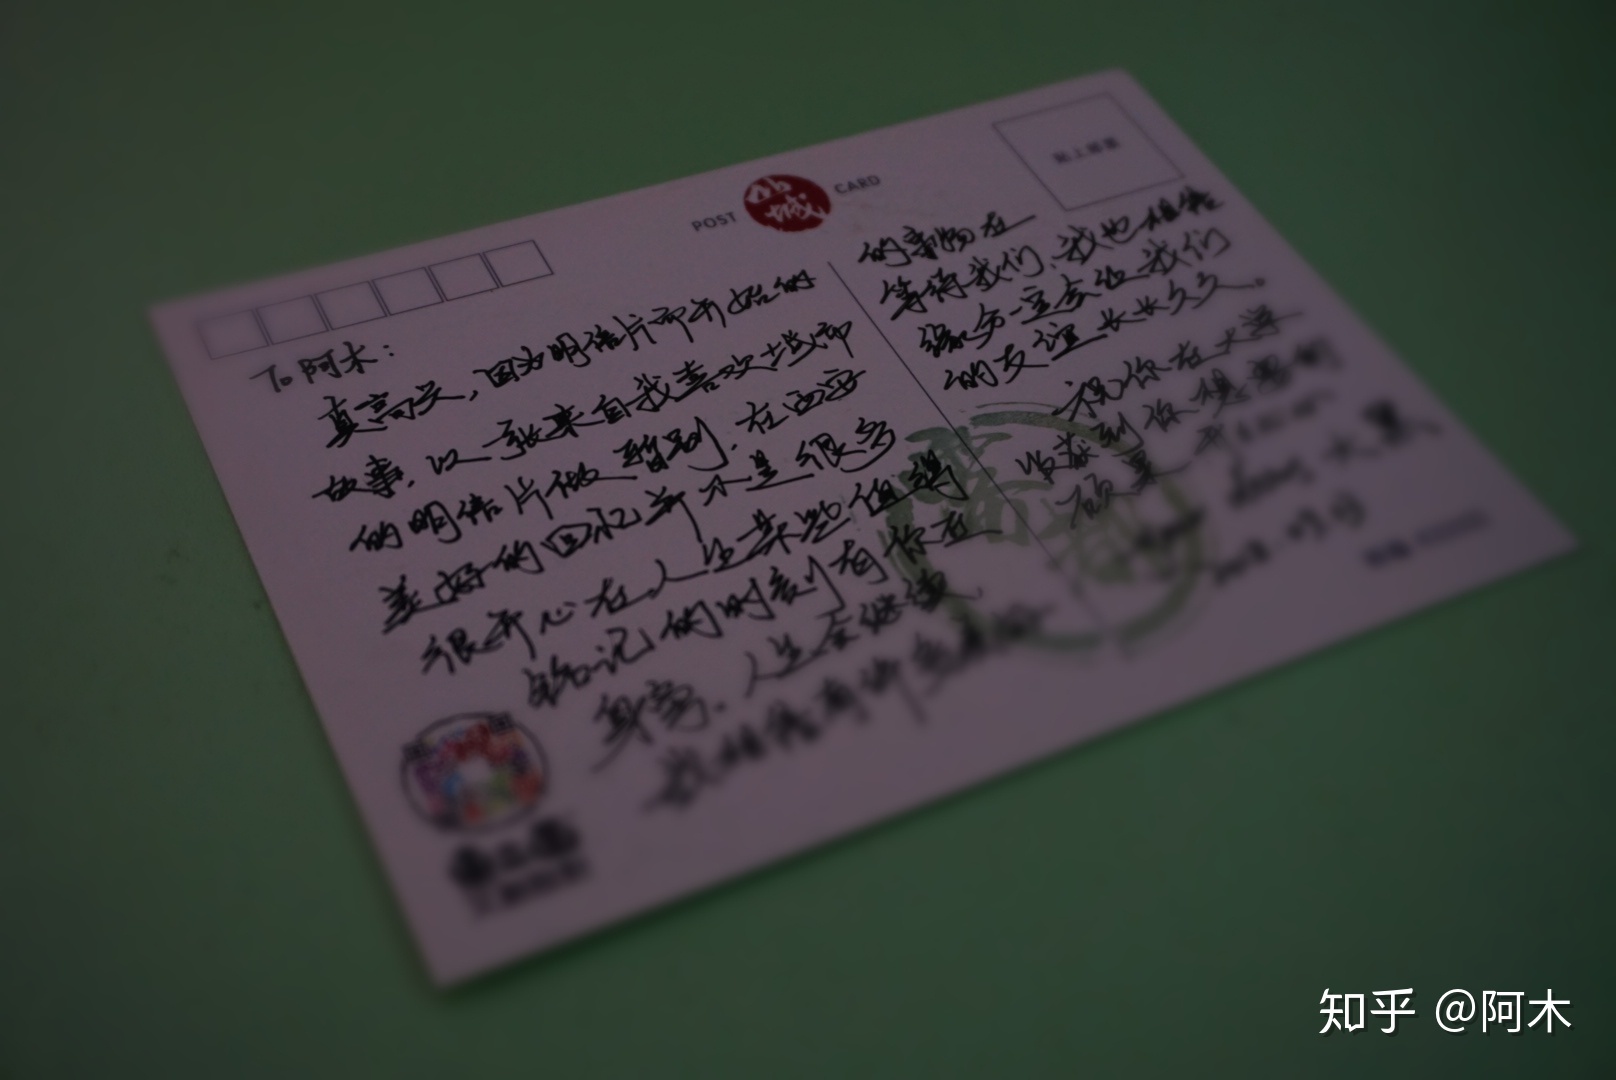 POST
CARD
贴上邮票
To 阿木：
真高兴，因为明信片而开始的
故事，以一张来自我喜欢城市
的明信片做暂别，在西安
美好的回忆并不是很多
很开心在人生某些值得
铭记的时刻有你在
身旁。人生会继续，
我相信有你
的事物在
等待我们，我也相信
缘分一定会让我们
的友谊长长久久。
祝你在大学
收获到你想要的
知乎 @阿木